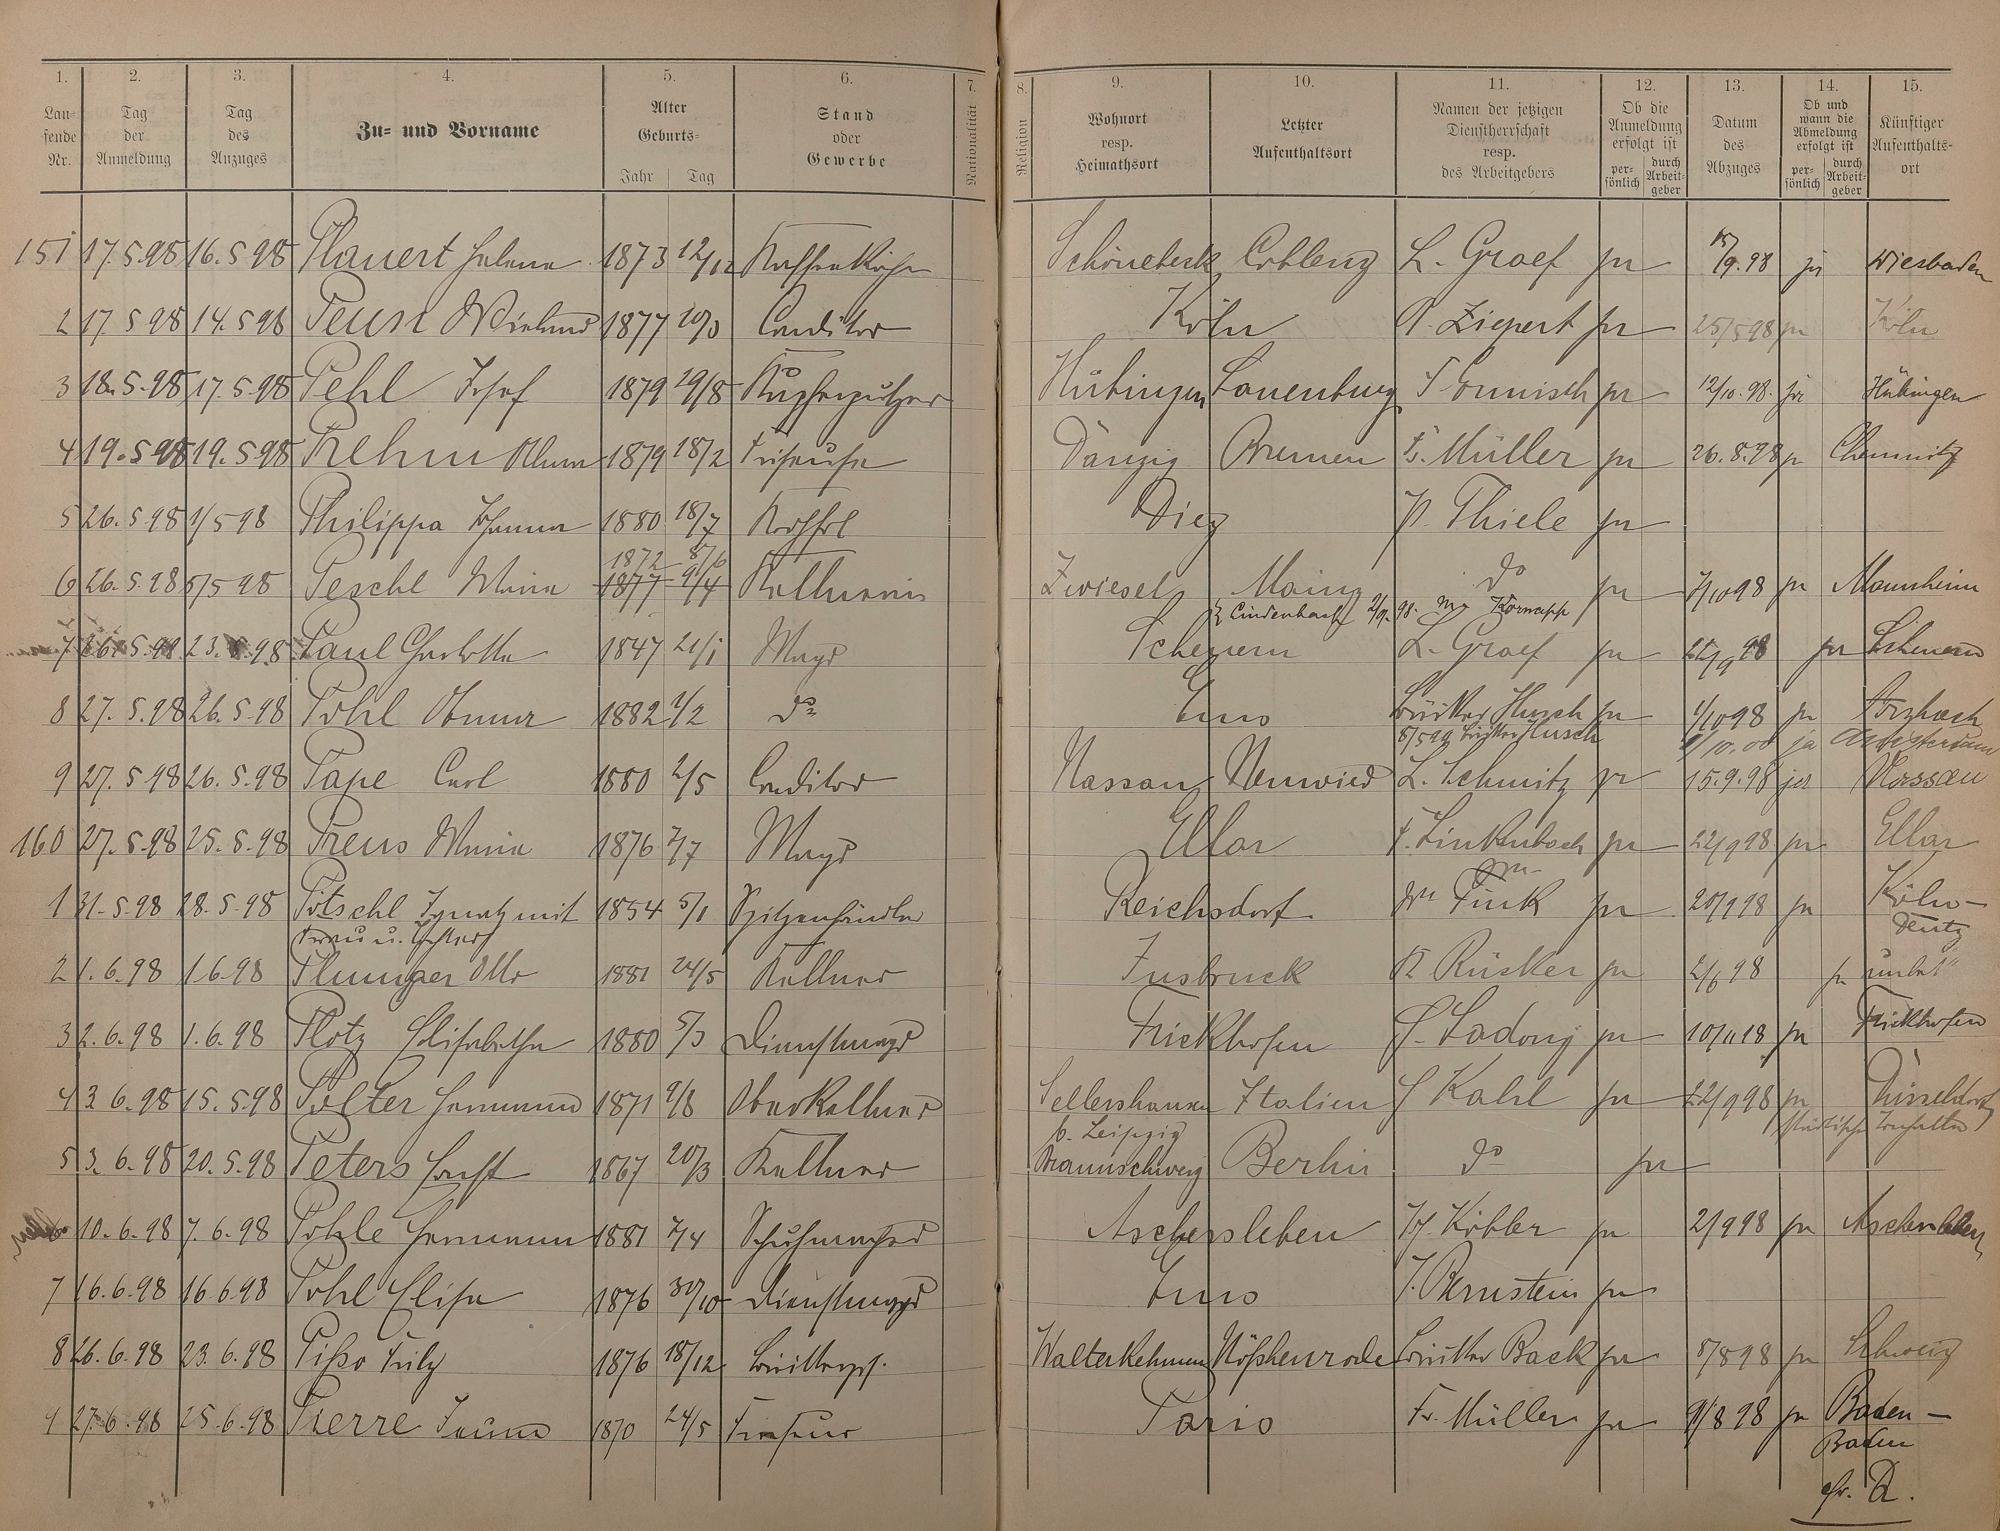 1. 2. 3. 4. 5. 6. 7. 8. 9. 10. 11. 12. 13. 14. 15.
Lau-
fende
Nr.
Tag
der
Anmeldung
Tag
des
Anzuges
Zu- und Vorname
Alter
Geburts-
Jahr Tag
Stand
oder
Gewerbe
Nationalität
Religion
Wohnort
resp.
Heimathsort
Letzter
Aufenthaltsort
Namen der jetzigen
Dienstherrschaft
resp.
des Arbeitgebers
Ob die
Anmeldung
erfolgt ist
per-
sönlich
durch
Arbeit-
geber
Datum
des
Abzuges
Ob und
wann die
Abmeldung
erfolgt ist
per-
sönlich
durch
Arbeit-
geber
Künftiger
Aufenthalts-
ort
151 17.5.98 16.5.98 Plauert Helene 1873 12/12 Schönebeck Coblenz L. Graef ja 15/9.98 ja Wiesbaden
2 17 5 98 14.5 98 1877 20/3 Conditor Köln ja 25/5 98 ja Köln
3 18.5.98 17.5.98 Pehl Josef 1879 29/8 Kupferputzer Hübingen Lauenburg ja 12/10.98. ja Hübingen
4 19.5 98 19.5 98 Prehm 1879 18/2 Friseuse Danzig Bremen Fr. Müller ja 26.8.98 ja Chemnitz
5 26.5 98 1/5 98 Philippa Johanna 1880 18/7 Diez P. Thiele ja
1872 8/6
6 26.5.98 5/5 98 Peschl Maria 1877 9/4 Kellnerin Zwiesel Mainz do ja 7/10 98 ja Mannheim
Lindenbach 2/9.98.
7 26.5.98 23.5.98 Paul Charlotte 1847 21/1 Magd Scheuern L. Graef ja 98 ja Scheuern
8 27.5.98 26.5.98 Pohl 1882 1/2 do Ems Brüder Hirsch ja 1/10 98 ja
1/10.00 ja
9 27.5 98 26.5.98 Pape Carl 1880 2/5 Conditor Nassau Neuwied L. Schmitz ja 15.9.98 ja Nassau
160 27.5.98 25.5.98 Preus Maria 1876 7/7 Magd Ellar F. Linkenbach ja 22/9 98 ja Ellar
1 31.5.98 28.5.98 Pötschl Ignatz mit 1854 5/1 Spitzenhändler Reichsdorf Fink ja 20/9 98 ja Köln-
Frau u. Tochter Deutz
2 1.6.98 1.6.98 Plunger Otto 1881 24/5 Kellner Insbruck R Rücker ja 2/6 98 ja unbek
3 2.6.98 1.6.98 Plotz Elisabetha 1880 5/3 Dienstmagd Frickhofen ja 10/11 98 ja Frickhofen
4 3 6.98 15.5.98 Polter Hermann 1871 9/8 Oberkellner Sellershausen Italien Kahl ja 22/9 98 ja Düsseldorf
b. Leipzig
5 3.6.98 20.5.98 Peters 1867 20/3 Kellner Braunschweig Berlin do ja
6 10.6.98 7.6.98 Pohle Hermann 1881 7/4 Schuhmacher Aschersleben Köbler ja 2/9 98 ja Aschersleben
7 16.6.98 16.6.98 Pohl Elise 1876 30/10 Dienstmagd Ems J. Bernstein ja
8 26.6.98 23.6.98 1876 18/12 Walterkehmen Brüder Back ja 8/8 98 ja Schweiz
9 27.6.98 25.6.98 Pierre 1870 24/5 Friseur Paris Fr. Müller ja 9/8 98 ja Baden-
Baden